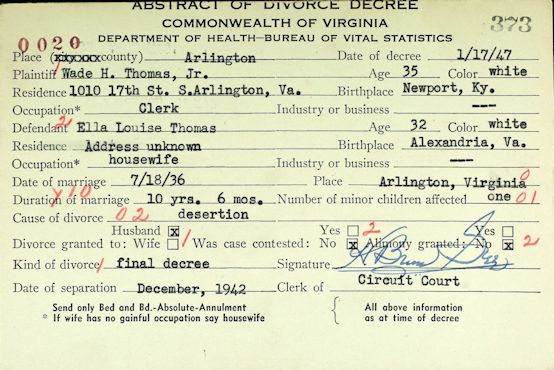 ABSTRACT OF DIVORCE DECREE
COMMONWEALTH OF VIRGINIA
373
0020
DEPARTMENT OF HEALTH—BUREAU OF VITAL STATISTICS
Place (xxxxxxx county) Arlington Date of decree 1/17/47
Plaintiff 1 Wade H. Thomas, Jr. Age 35 Color white
Residence 1010 17th St. S. Arlington, Va. Birthplace Newport, Ky.
Occupation* Clerk Industry or business ---
Defendant 2 Ella Louise Thomas Age 32 Color white
Residence Address unknown Birthplace Alexandria, Va.
Occupation* housewife Industry or business ---
Date of marriage 7/18/36 Place Arlington, Virginia 0
Duration of marriage 10 yrs. 6 mos. Number of minor children affected one 01
Cause of divorce 02 desertion
Husband x Yes 2 Yes
Divorce granted to: Wife 1 Was case contested: No x Alimony granted: No x 2
Kind of divorce 1 final decree Signature
Date of separation December, 1942 Clerk of Circuit Court
Send only Bed and Bd.-Absolute-Annulment
* If wife has no gainful occupation say housewife
All above information
as at time of decree